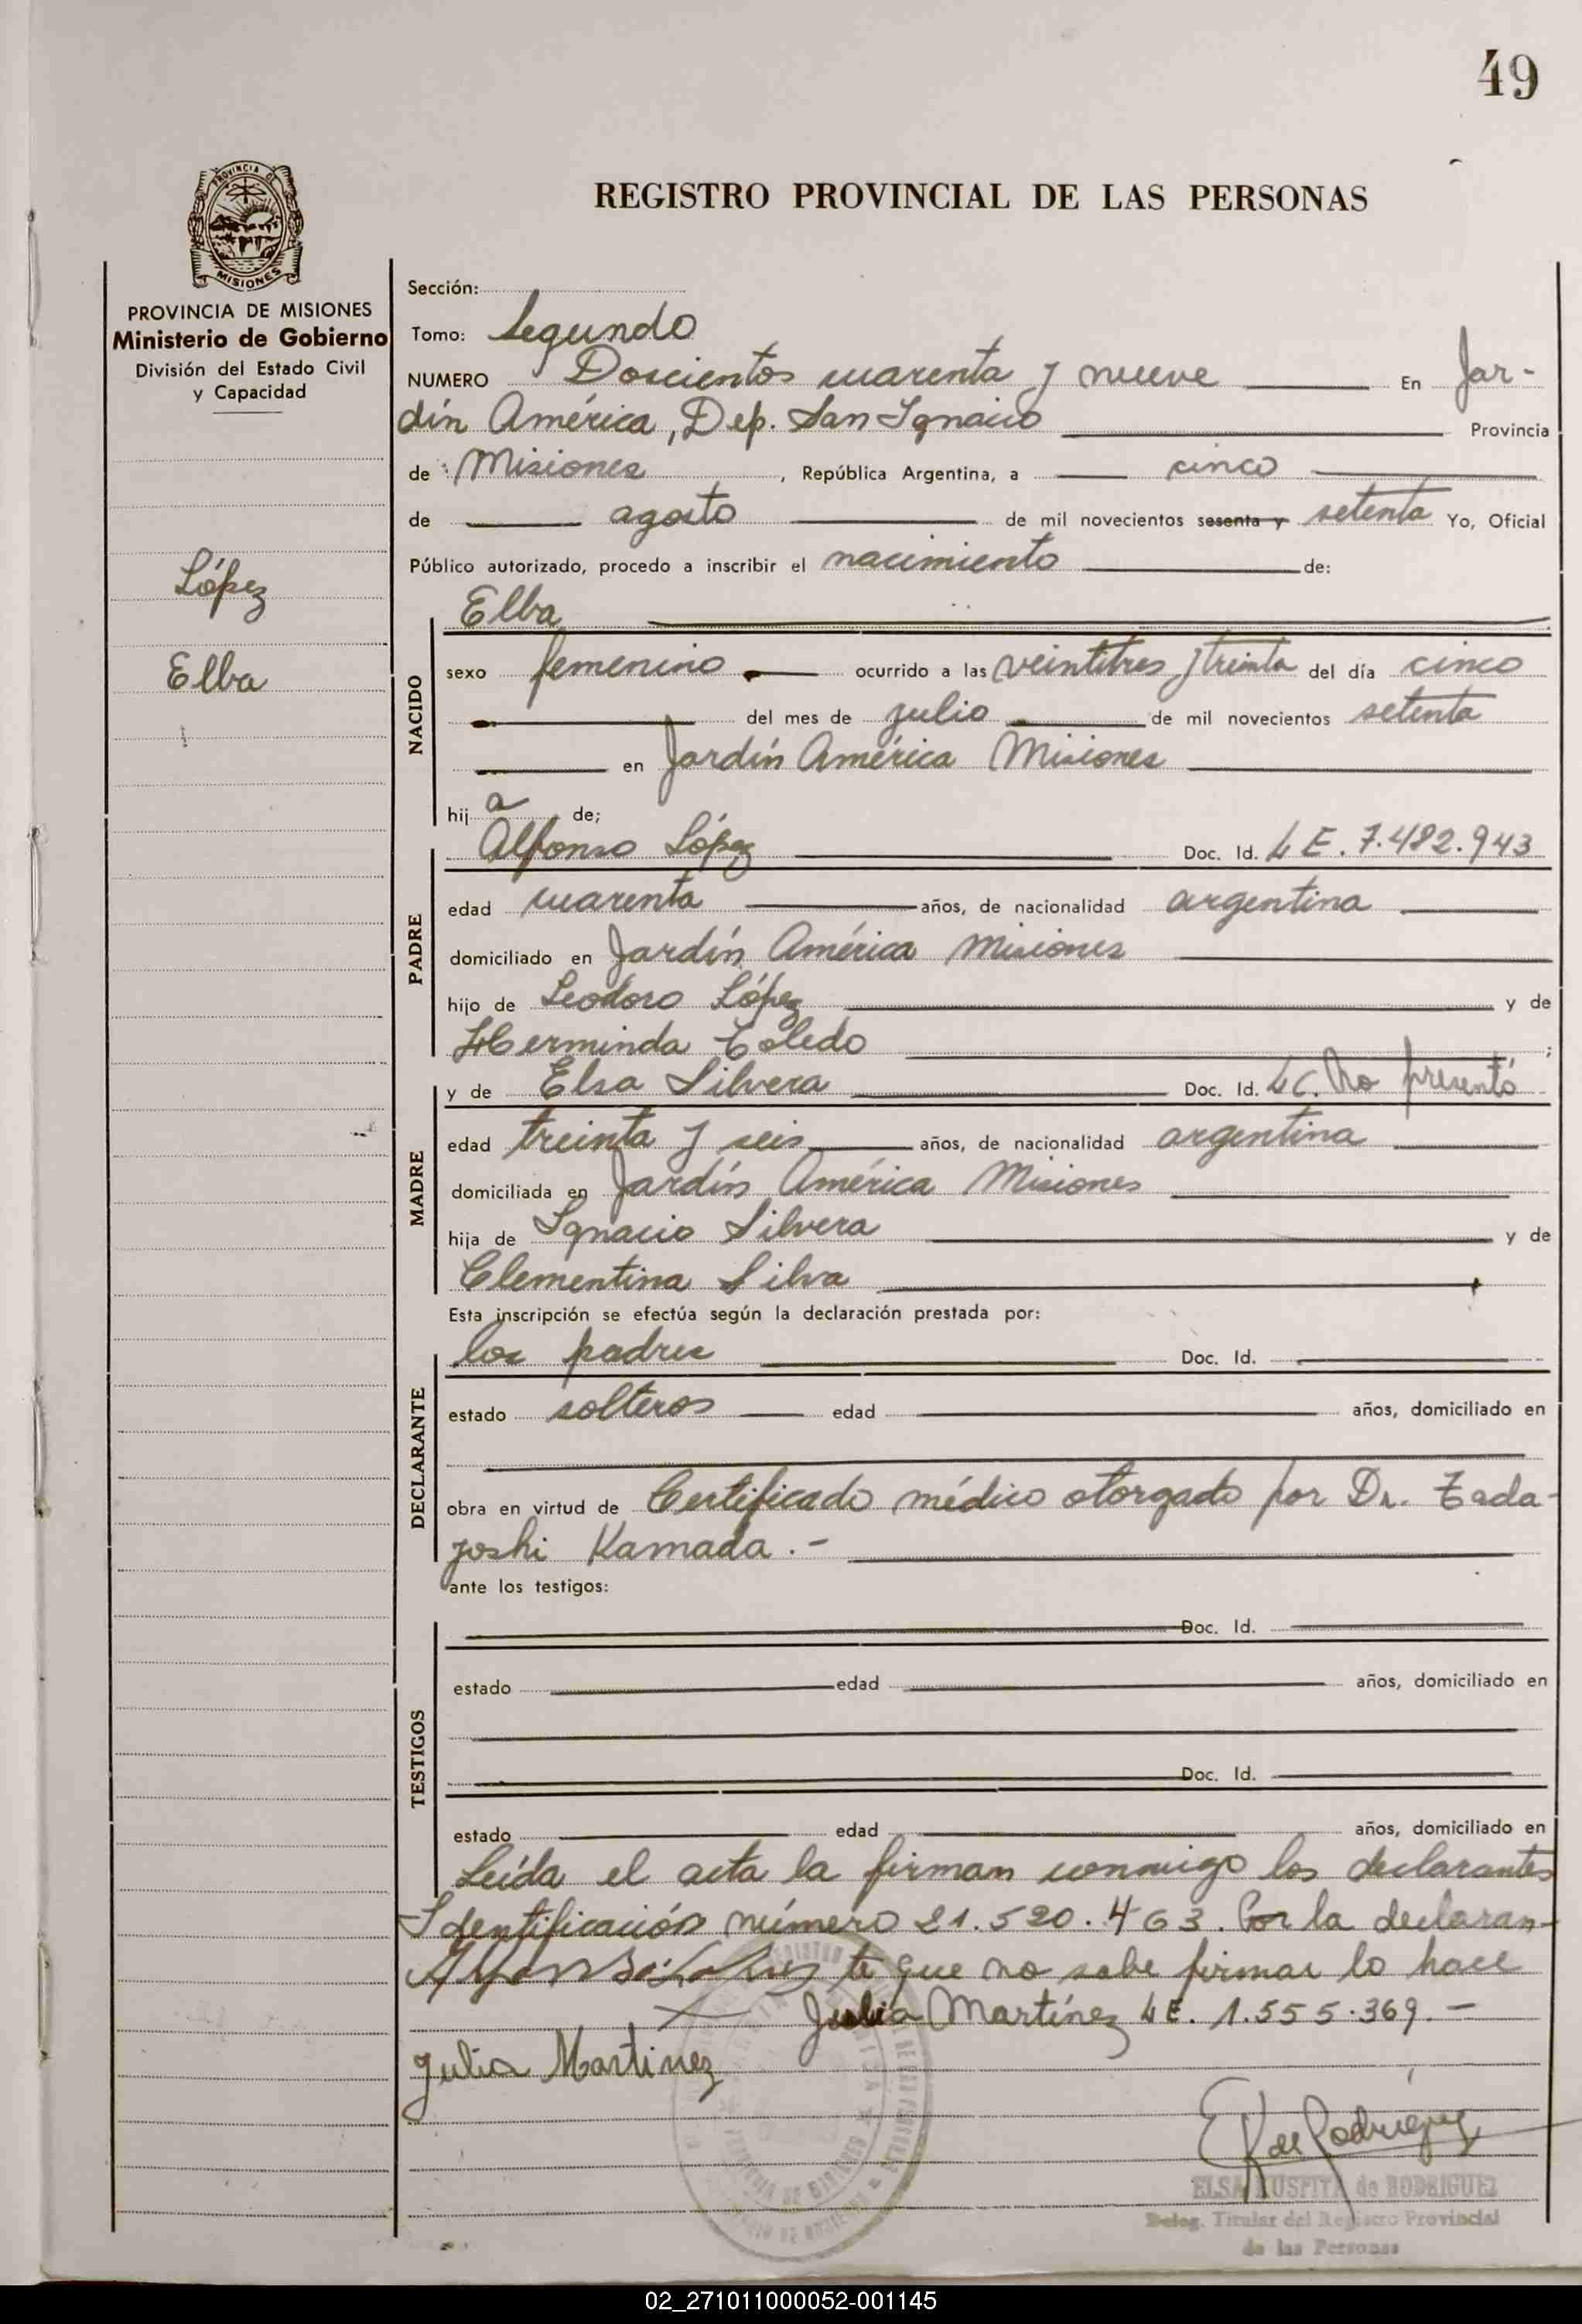 49
PROVINCIA DE
MISIONES
REGISTRO PROVINCIAL DE LAS PERSONAS
PROVINCIA DE MISIONES
Ministerio de Gobierno
División del Estado Civil
y Capacidad
López
Elba
Sección:
Tomo: Segundo
NUMERO Doscientos cuarenta y nueve En Jar-
dín América, Dep. San Ignacio Provincia
de Misiones, República Argentina, a cinco
de agosto de mil novecientos sesenta y setenta Yo, Oficial
Público autorizado, procedo a inscribir el nacimiento de:
Elba
NACIDO
sexo femenino ocurrido a las veintitres y treinta del día cinco
del mes de julio de mil novecientos setenta
en Jardín América Misiones
hij a de;
Alfonso López Doc. Id. L E. 7.482.943
PADRE
edad cuarenta años, de nacionalidad argentina
domiciliado en Jardín América Misiones
hijo de Leodoro López y de
Herminda Toledo ;
y de Elsa Silvera Doc. Id. L C. No presentó
MADRE
edad treinta y seis años, de nacionalidad argentina
domiciliada en Jardín América Misiones
hija de Ignacio Silvera y de
Clementina Silva
Esta inscripción se efectúa según la declaración prestada por:
los padres Doc. Id.
DECLARANTE
estado solteros edad años, domiciliado en
obra en virtud de Certificado médico otorgado por Dr. Tada-
yoshi Kamada.-
ante los testigos:
Doc. Id.
TESTIGOS
estado edad años, domiciliado en
Doc. Id.
estado edad años, domiciliado en
Leída el acta la firman conmigo los declarantes
Identificación número 21.520.463. Por la declaran-
Alfonso Lopez te que no sabe firmar lo hace
Julia Martínez L E. 1.555.369.-
Julia Martinez
E K de Rodríguez
ELSA de RODRIGUEZ
Deleg. Titular del Registro Provincial
de las Personas
02_271011000052-001145